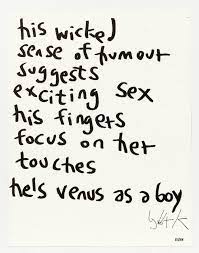 his wicked
sense of humour
suggests
exciting sex
his fingers
focus on her
touches
he's venus as a boy
björk